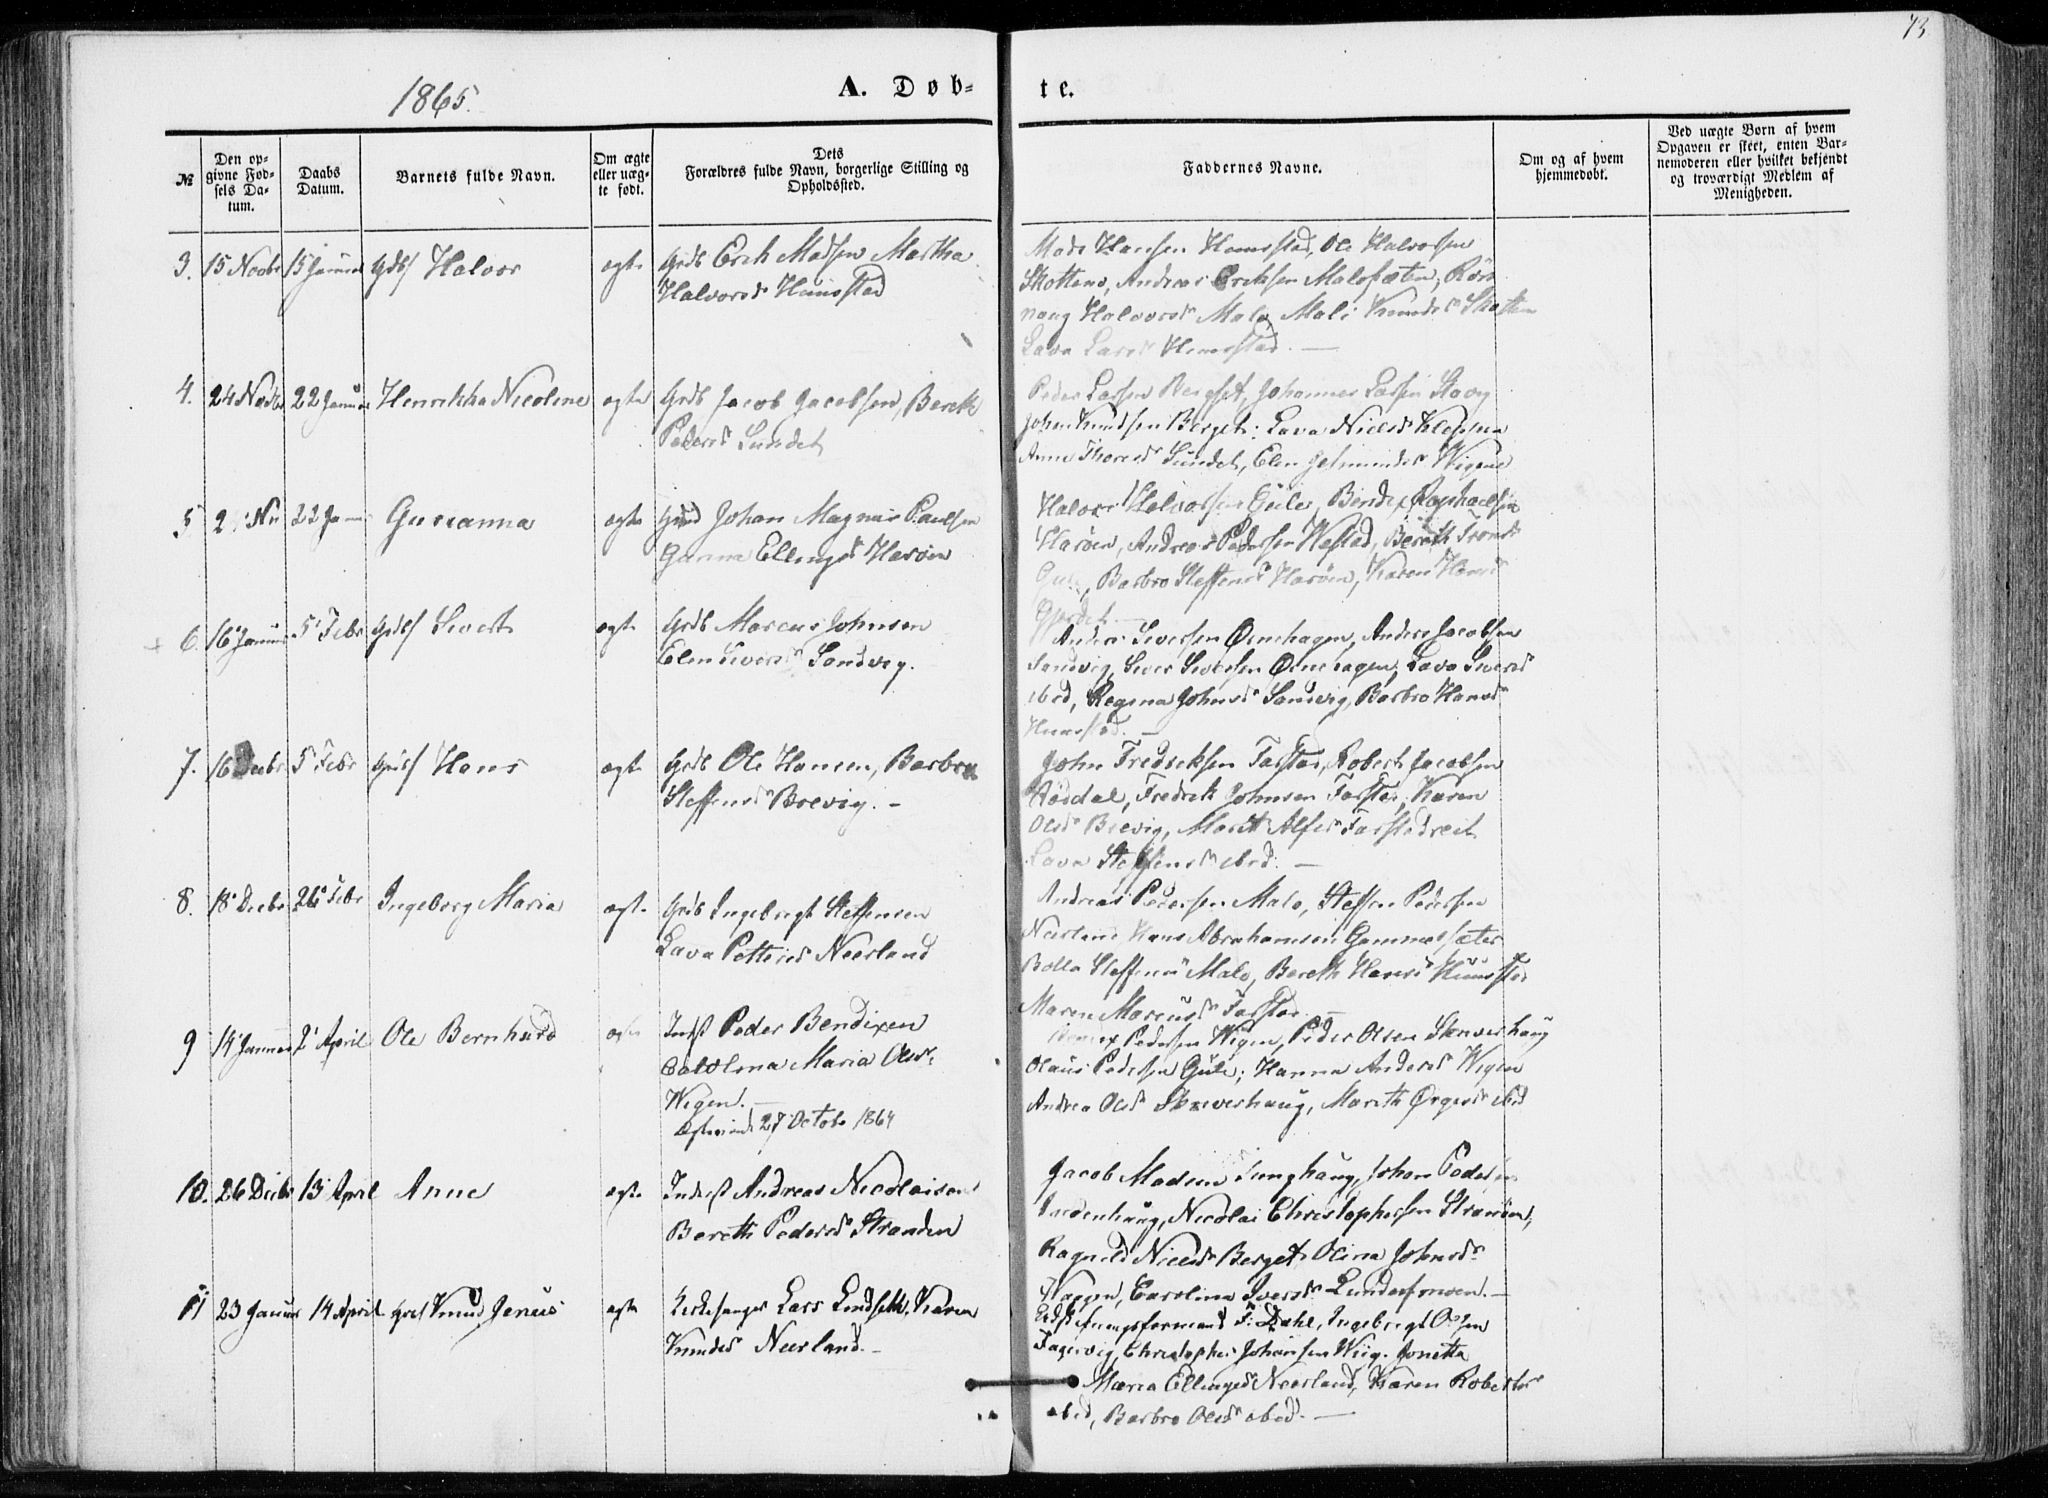 73
1865.
A. Døb-
te.
№
Den op-
givne Fød-
sels Da-
tum.
Daabs
Datum.
Barnets fulde Navn.
Om ægte
eller uæg-
te født.
Dets
Forældres fulde Navn, borgerlige Stilling og
Opholdssted.
Faddernes Navne.
Om og af hvem
hjemmedøbt.
Ved uægte Børn af hvem
Opgaven er skeet, enten Bar-
nemoderen eller hvilket bekjendt
og troværdigt Medlem af
Menigheden.
3. 15 Novbr 15 Januar Halvor ægte Grdb Erik Madsen Martha
Halvorsdr Hunsstad
Mads Hansen Hunsstad, Ole Halvorsen
Skotten, Andreas Eriksen Malosæter,
Halvorsdr Malo, Mali Knudsdr Skotten
Lava Larsdr Hunsstad. —
4. 24 Novbr 22 Januar Henrikka Nicoline ægte Grdb Jacob Jacobsen, Bereth
Pedersdr Sundet
Peder Larsen Bergset, Johannes Larsen Stavig
John Knudsen Berget; Lava Nielsdr
Anne Thoresdr Sundet, Elen Wigene
5 22 Jan Gurianna ægte Johan Magnus Paulsen
Gurina Ellingsdr Harøen
Halvor Halvorsen Gule, Bendix Raphaelsen
Harøen, Andreas Pedersen Westad, Bereth
Gule, Barbro Steffensdr Harøen, Karen Hansdr
6. 16 Januar 5 Febr Sivert ægte Grdb Marcus Johnsen
Elen Siversdr Sandvig.
Anders Siversen Ørnehagen, Anders Jacobsen
Sandvig, Siver Siversen Ørnehagen, Lava Siversdr
ibed, Regina Johnsdr Sandvig, Barbro Hansdr
Hunsstad. —
7. 16 Decbr 5 Febr Hans ægte Grdb Ole Hansen, Barbro
Steffensdr Brevig. —
John Fredriksen Farstad, Robert Jacobsen
Røddal, Fredrik Johnsen Farstad, Karen
Olsdr Brevig, Marit Alfsdr Farstadreit
Lava Steffensdr ibed. —
8. 18 Decbr 26 Febr Ingeborg Maria ægte Grdb Ingebrigt Steffensen
Lava Pettersdr Neerland
Andreas Pedersen Malo, Steffen Pedersen
Neerland Hans Abrahamsen Gammelsæter
Bolla Steffensdr Malo, Bereth Hansdr Hunsstad
Maren Marcusdr Farstad. —
9 14 Januar 2 April Ole Bernhard ægte Indst Peder Bendixen
Carolina Maria Olsdr
Wigen. —
27 Octobr 1864
Bendix Pedersen Wigen, Peder Olsen Skarveshaug
Olaus Pedersen Gule; Hanna Andersdr Wigen
Andrea Olsdr Skarveshaug, Marith ibed
10. 26 Decbr 13 April Anne ægte Inderst Andreas Nicolaisen
Bereth Pedersdr Stranden
Jacob Madsen Tunghaug, Johan Pedersen
Nicolai Christophersen Stranden,
Ragnild Nielsdr Berget, Olina Johnsdr
Hagen, Carolina Iversdr
11 23 Januar 14 April Knud Jenus ægte Kirkesanger Lars Lindseth, Karen
Knudsdr Neerland. —
F: Dahl, Ingebrigt Olsen
Fagervig, Christopher Johansen Wiig. Jonetta
Maria Ellingsdr Neerland, Karen Robertsdr
ibed, Barbro Olsdr ibed. —